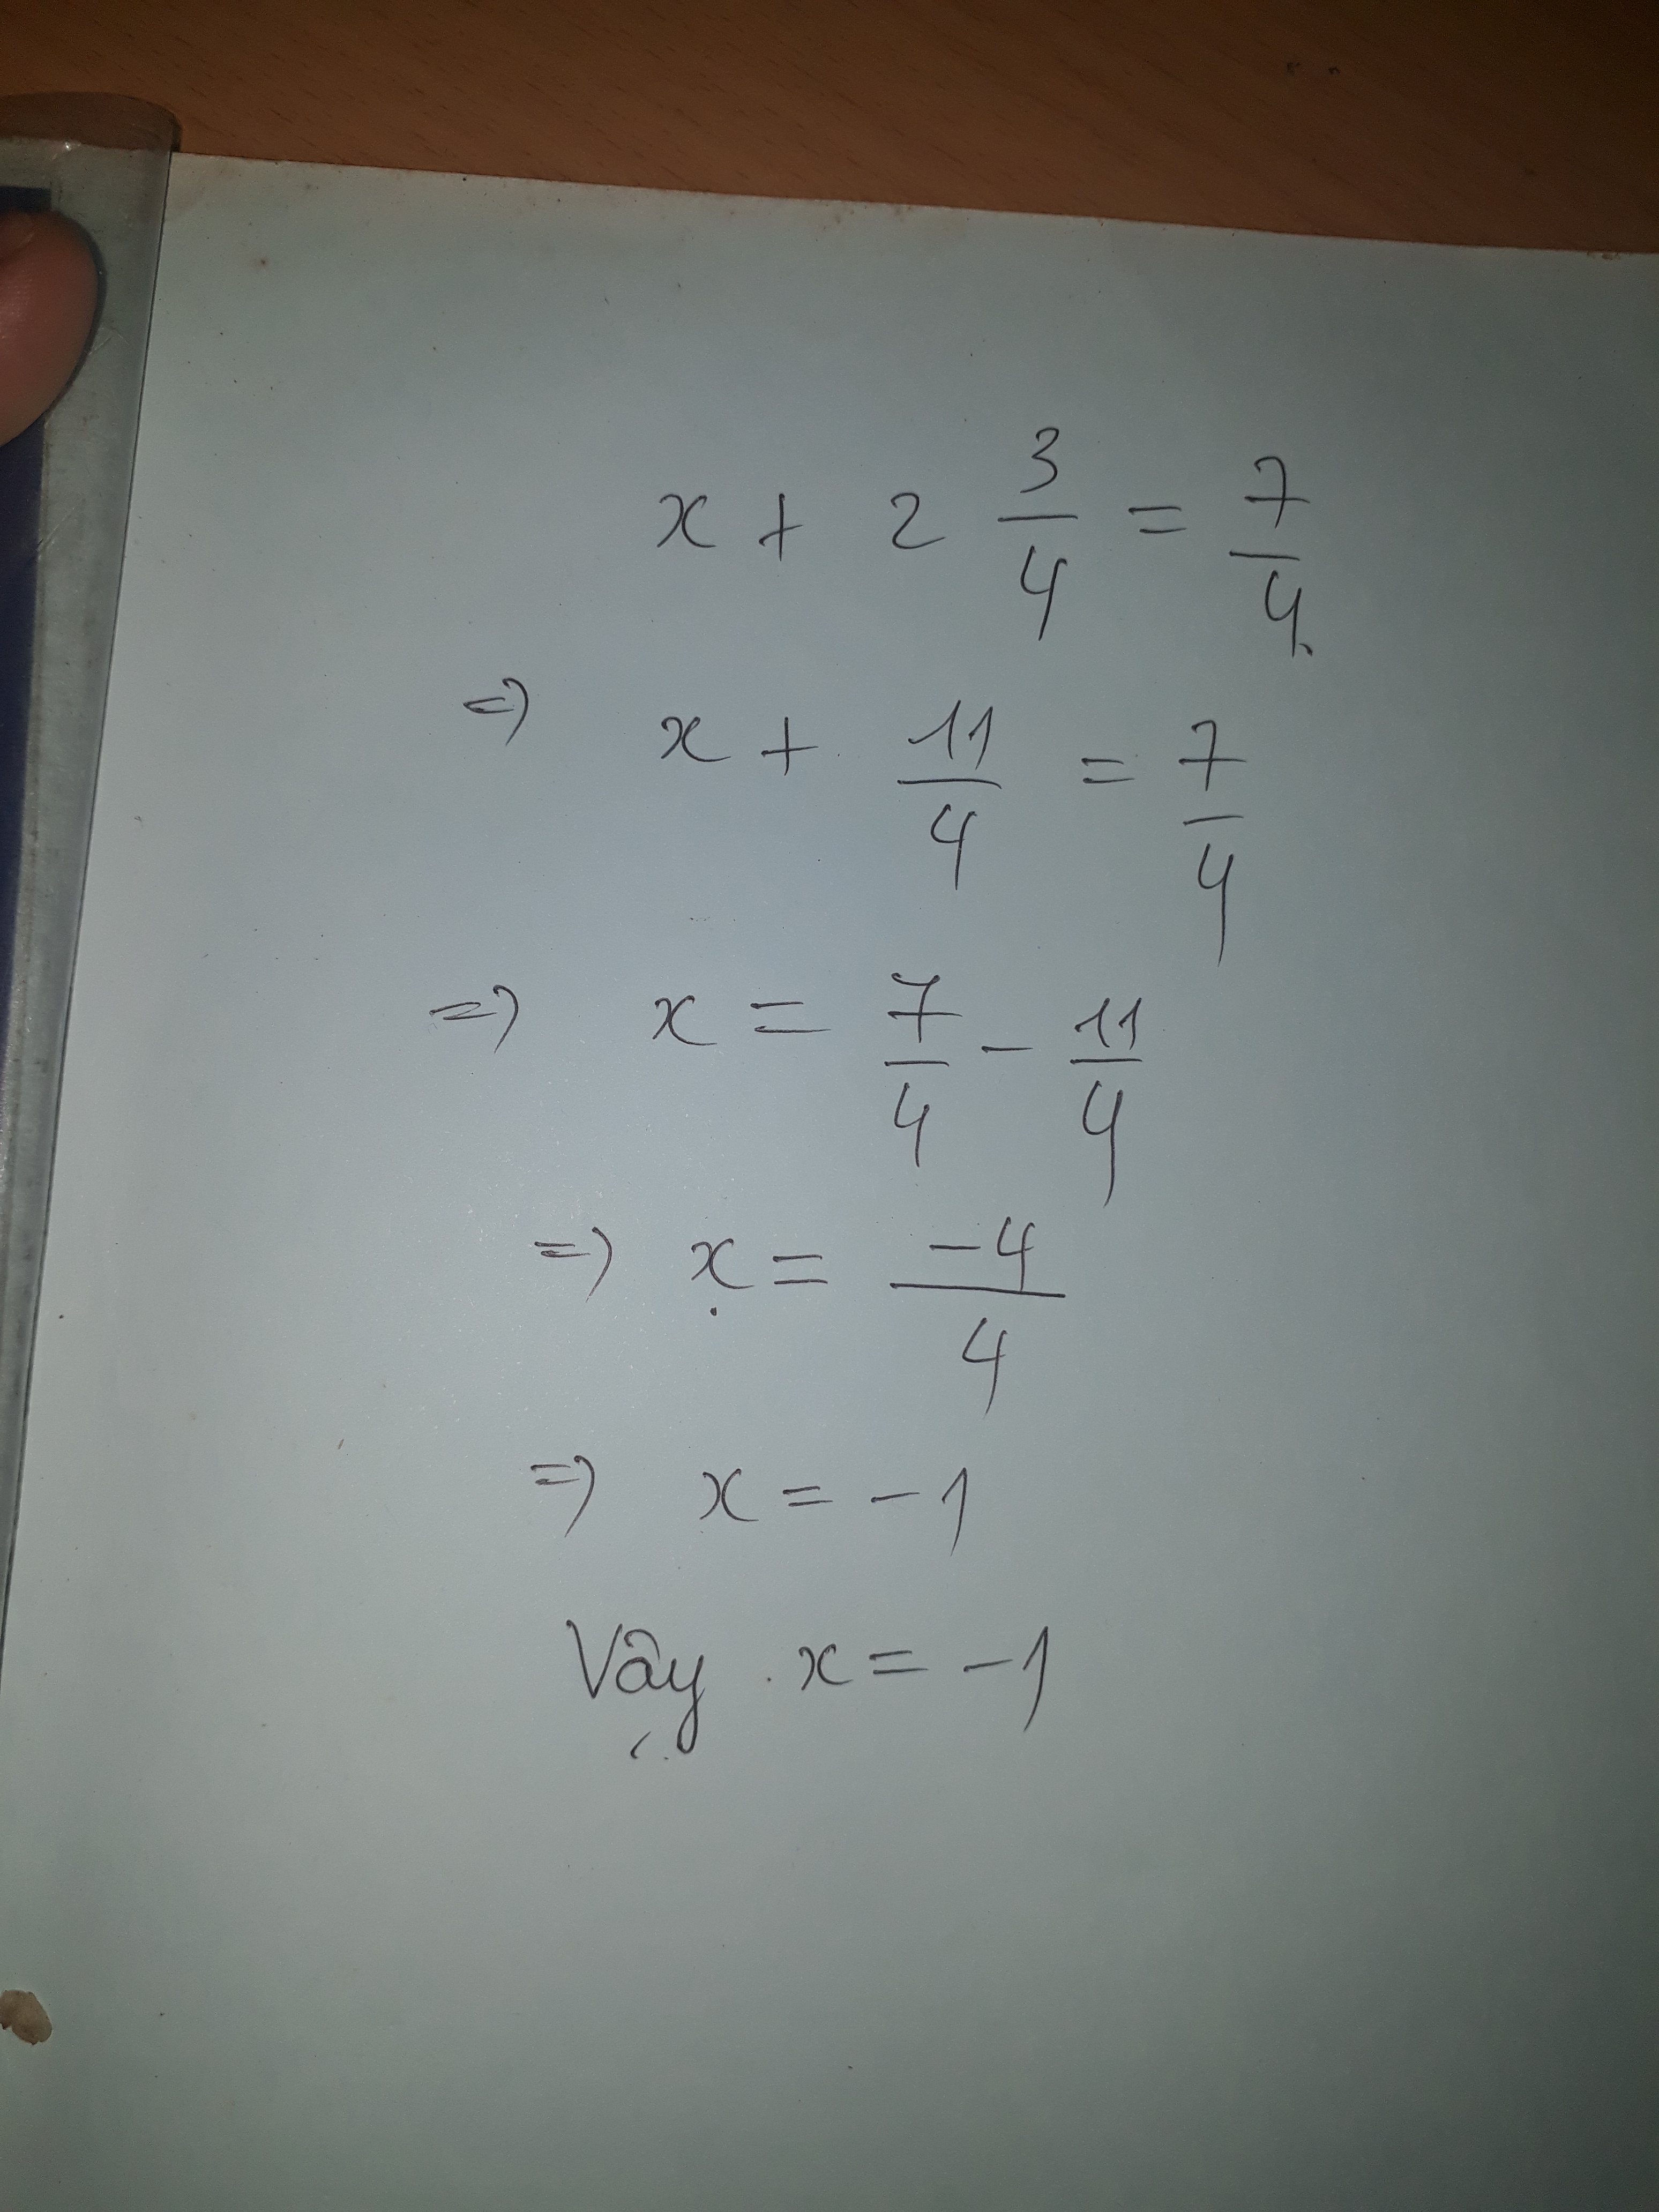 x + 2 3/4 = 7/4
=> x + 11/4 = 7/4
=> x = 7/4 - 11/4
=> x = -4/4
=> x = -1
Vậy x = -1